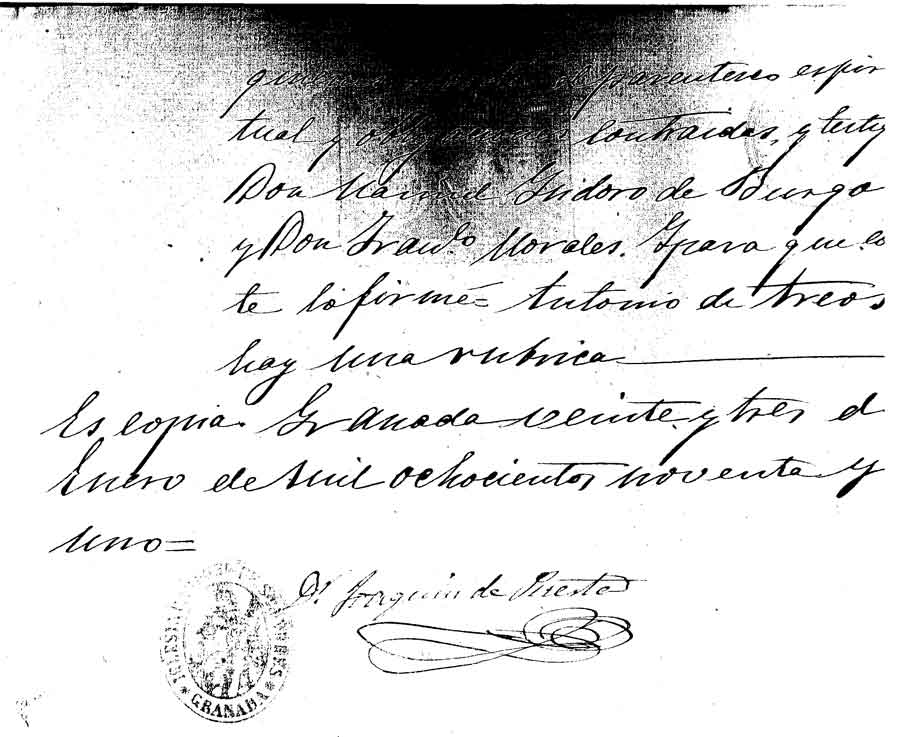 parentesco espiri
tual y obligaciones contraidas, y testg
Don Manuel Isidoro de Burgo
y Don Franco Morales. Y para que co
te lo firmé= Antonio de
hay una rubrica
Es copia. Granada veinte y tres d
Enero de mil ochocientos noventa y
uno=
Dr Joaquin de Puesta
GRANADA